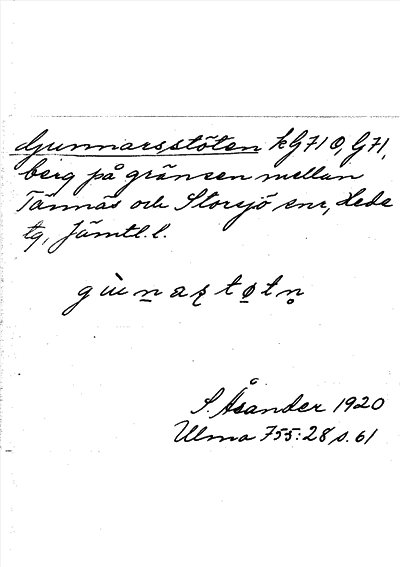 Gunnarsstöten kG71 O, G71,
berg på gränsen mellan
Tännäs och Storsjö snr, Hede
tg, Jämtl. l.
S. Åsander 1920
Ulma 755:28 s. 61